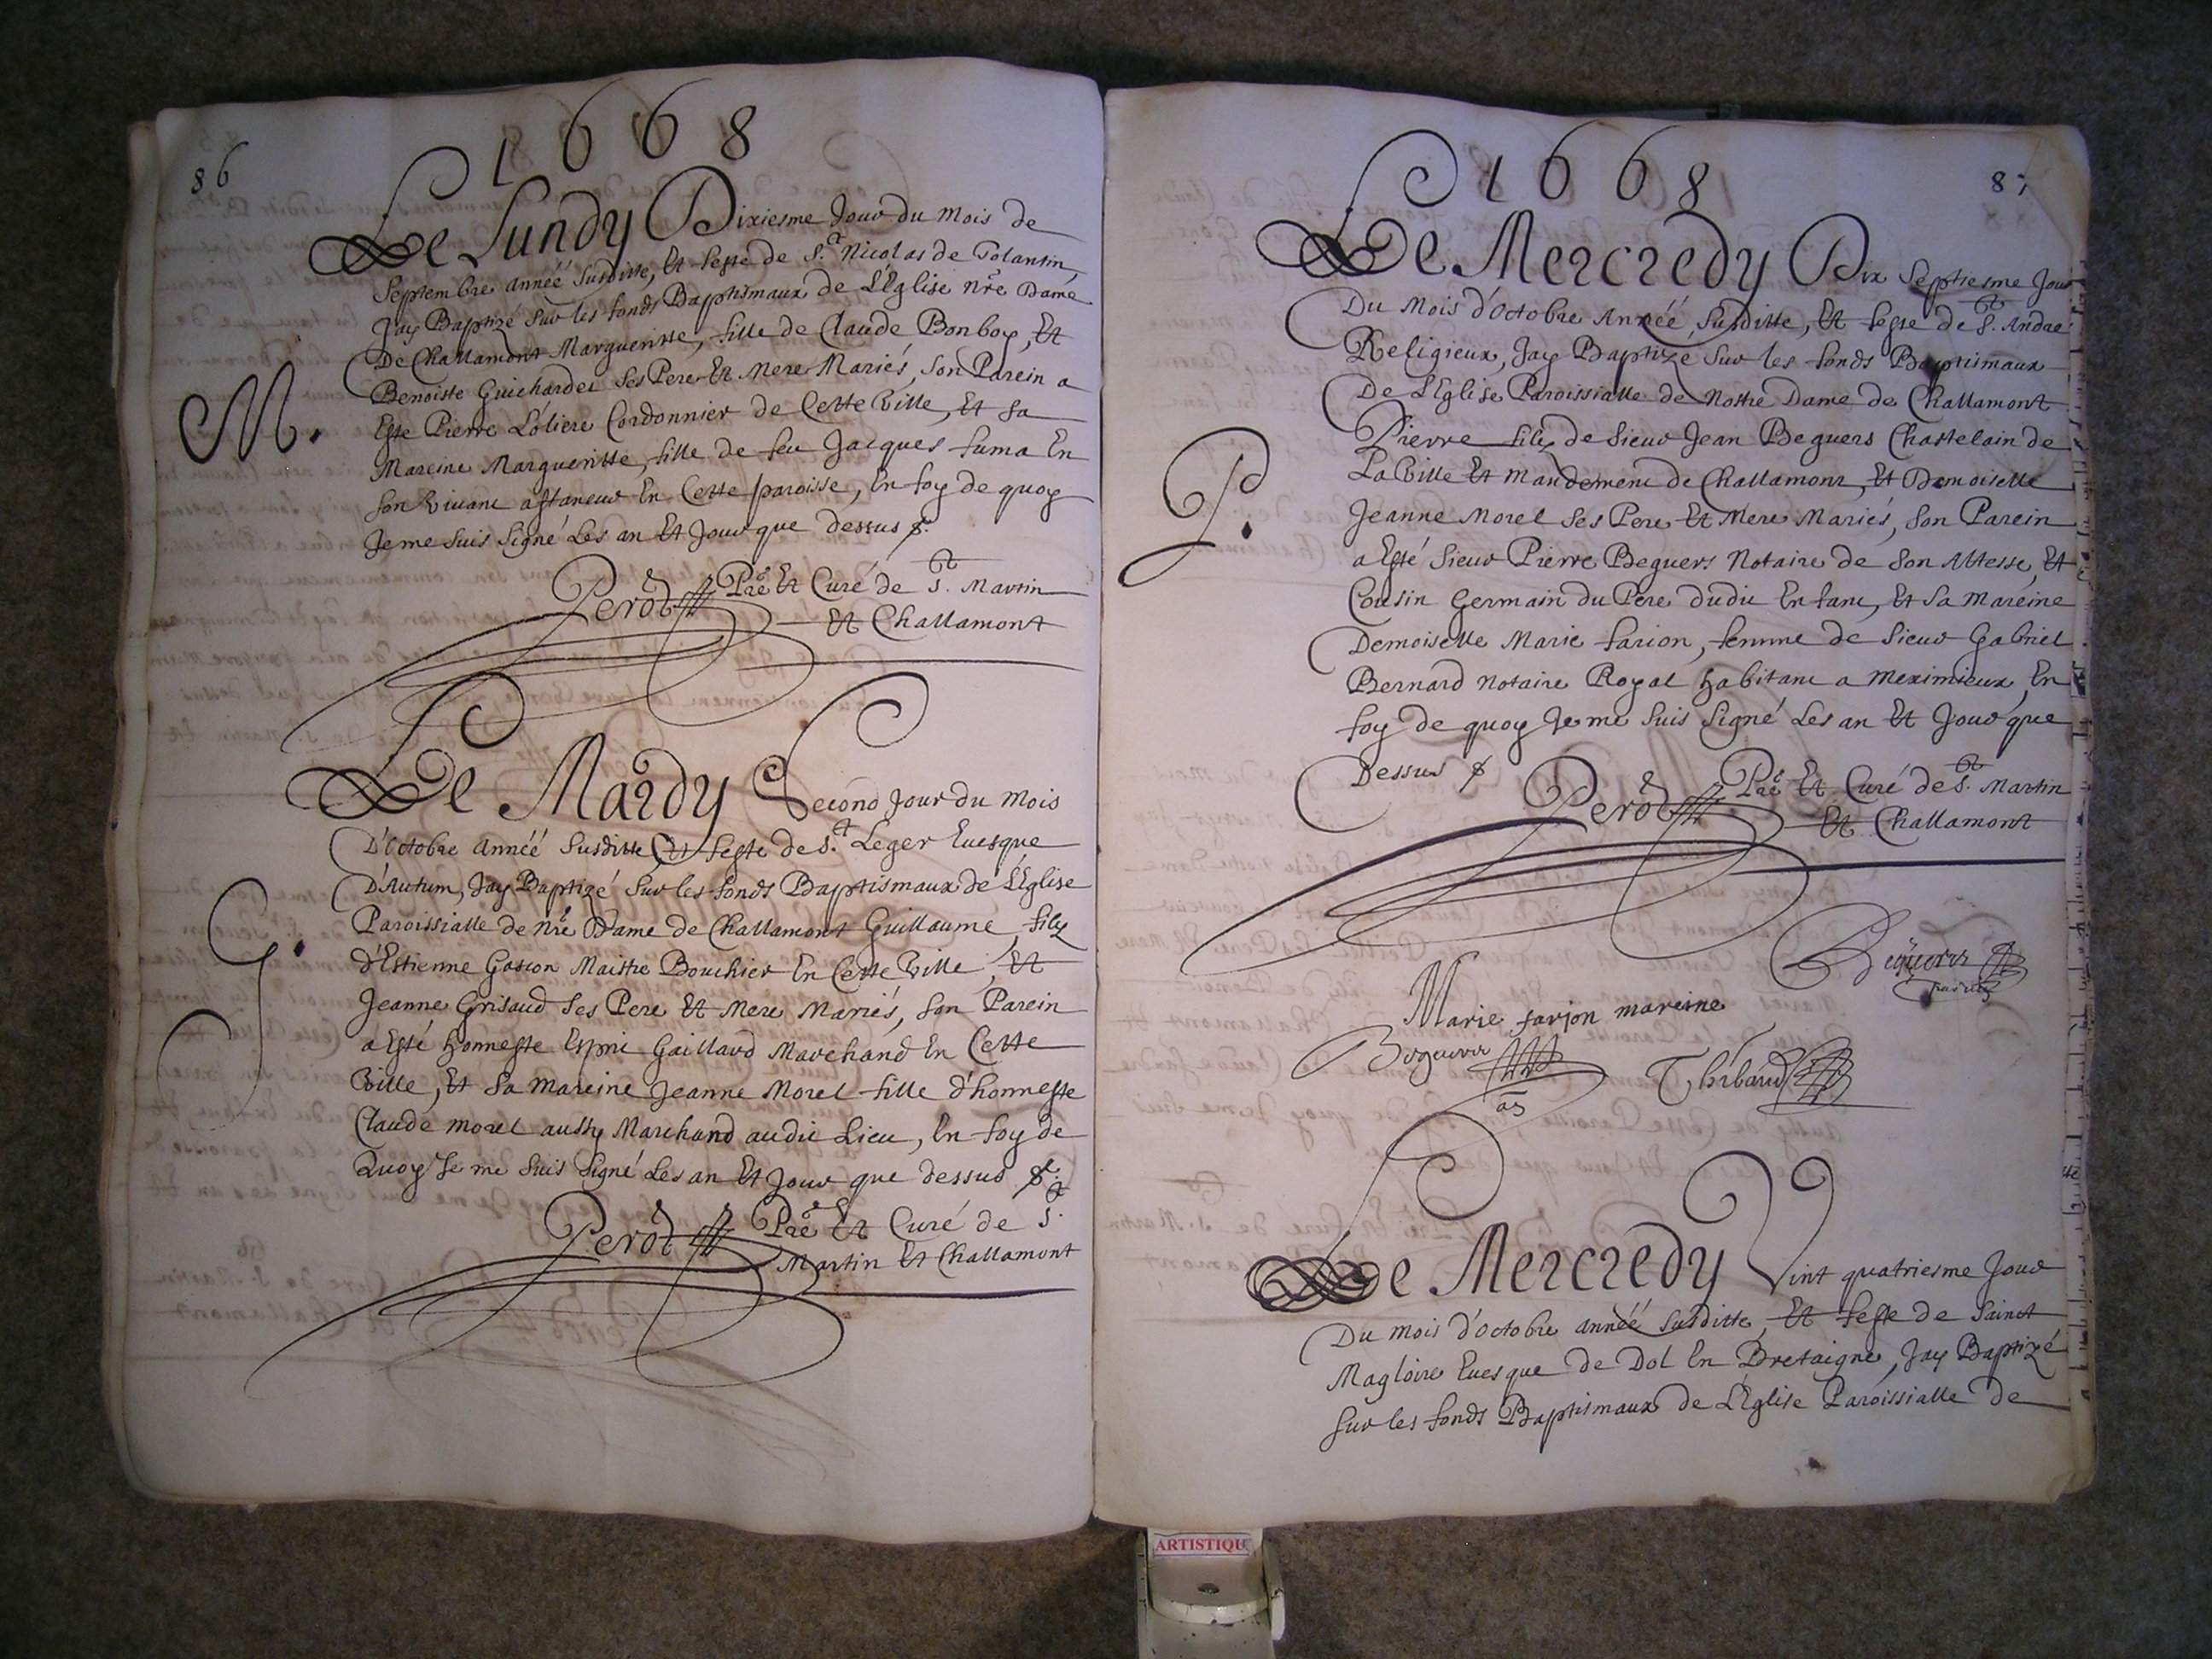 86
1668
Le Lundy Dixiesme Jour du mois de
Septembre année Susditte, Et feste de S.t Nicolas de Tolantin,
Jay Baptizé Sur les fonds Baptismaux de L'Eglise nre Dame
De Challamont Margueritte, fille de Claude Bonboy, Et
Benoiste Guichardet Ses Pere Et Mere Mariés, Son Parein a
M.
Esté Pierre Loliere Cordonnier de Cette Ville, Et Sa
Mareine Margueritte, fille de feu Jacques fuma En
Son Vivant a En Cette paroisse, En foy de quoy
Je me Suis Signé Les an Et Jour que dessus
Perod Pre Et Curé de S.t Martin
Et Challamont
Le Mardy Second Jour du mois
D'Octobre année Susditte Et feste de S.t Leger Euesque
D'Autum, Jay Baptizé Sur les fonds Baptismaux de L'Eglise
Paroissialle de Nre Dame de Challamont Guillaume, filz
G.
d'Estienne Gascon Maistre Bouchier En Cette Ville, Et
Jeanne Grisaud Ses Pere Et Mere Mariés, Son Parein
a Esté Honneste Esprit Gaillard Marchand En Cette
Ville, Et Sa Mareine Jeanne Morel fille d'honneste
Claude morel aussy Marchand audit Lieu, En foy de
Quoy Je me Suis Signé Les an Et Jour que dessus
Perod Pre Et Curé de S.t
Martin Et Challamont
87
1668
Le Mercredy Dix Septiesme Jour
Du Mois d'Octobre Année Susditte, Et feste de S.t André
Religieux, Jay Baptizé Sur les fonds Baptismaux
De L'Eglise Paroissialle de Nostre Dame de Challamont
Pierre filz de Sieur Jean Beguers Chastelain de
La Ville Et Mandement de Challamont, Et Demoiselle
P.
Jeanne Morel Ses Pere Et Mere Mariés, Son Parein
a Esté Sieur Pierre Beguers Notaire de Son Altesse, Et
Cousin Germain du Pere dudit Enfant, Et Sa Mareine
Demoiselle Marie farion, femme de Sieur Gabriel
Bernard Notaire Royal habitant a Meximieux, En
foy de quoy Je me Suis Signé Les an Et Jour que
Dessus
Perod Pre Et Curé de S.t Martin
Et Challamont
Beguers
Marie farjon mareine
Beguers
Thibaud
Le Mercredy Vint quatriesme Jour
Du mois d'Octobre année Susditte, Et feste de Sainct
Magloire Euesque de Dol En Bretaigne, Jay Baptizé
Sur les fonds Baptismaux de L'Eglise Paroissialle de
ARTISTIQU